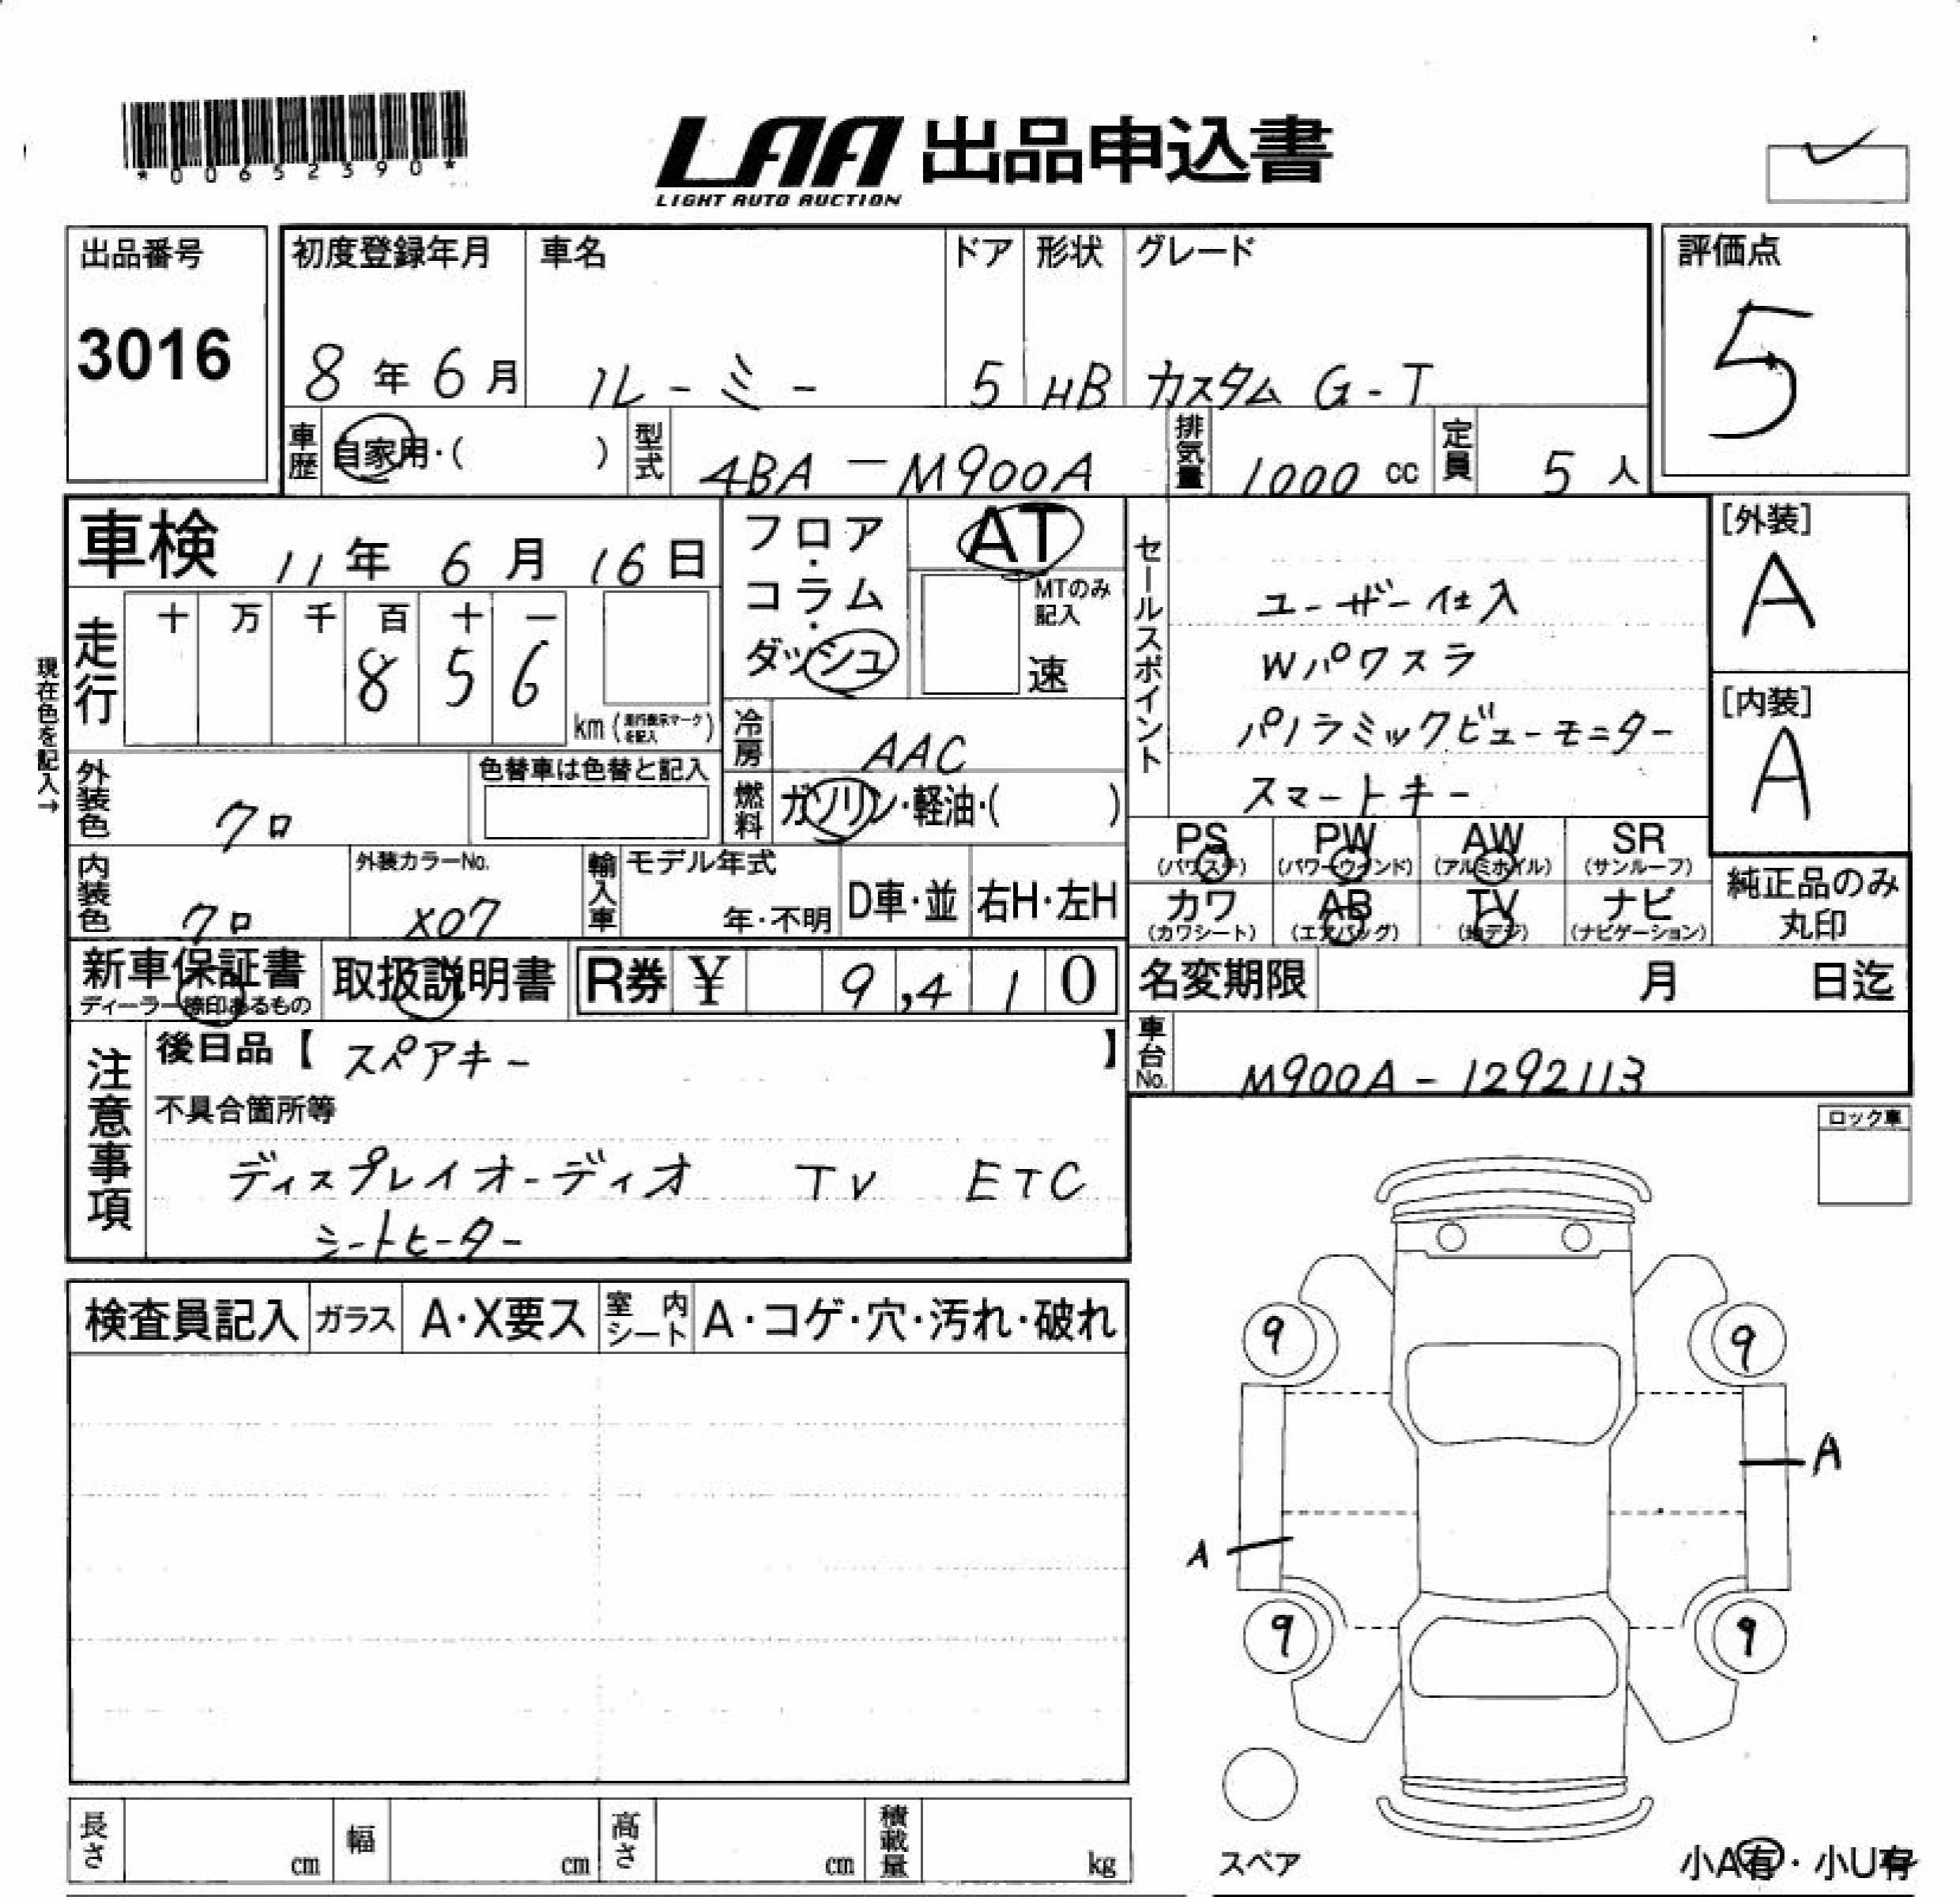 *00652390*
LAA 出品申込書
LIGHT AUTO AUCTION
出品番号
3016
初度登録年月
8年6月
車名
ルーミー
ドア
5
形状
HB
グレード
カスタム G-T
評価点
5
車歴 自家用・( )
型式 4BA-M900A
排気量 1000 cc
定員 5人
車検 11年6月16日
フロア・コラム・ダッシュ
AT
MTのみ記入
速
現在色を記入→
走行
十 万 千 百 十 一
8 5 6
km (走行表示マークを記入)
冷房 AAC
燃料 ガソリン・軽油・( )
外装色 クロ
色替車は色替と記入
内装色 クロ
外装カラーNo.
X07
輸入車
モデル年式
年・不明
D車・並
右H・左H
セールスポイント
ユーザー仕入
Wパワスラ
パノラミックビューモニター
スマートキー
[外装]
A
[内装]
A
PS (パワステ)
PW (パワーウインド)
AW (アルミホイル)
SR (サンルーフ)
カワ (カワシート)
AB (エアバッグ)
TV (地デジ)
ナビ (ナビゲーション)
純正品のみ丸印
新車保証書
ディーラー捺印あるもの
取扱説明書
R券 ¥ 9,410
名変期限 月 日迄
車台No. M900A-1292113
注意事項
後日品【スペアキー】
不具合箇所等
ディスプレイオーディオ TV ETC
シートヒーター
ロック車
検査員記入
ガラス A・X要ス
室内シート A・コゲ・穴・汚れ・破れ
9 9
A
A
9 9
スペア
小A有・小U有
長さ cm
幅 cm
高さ cm
積載量 kg